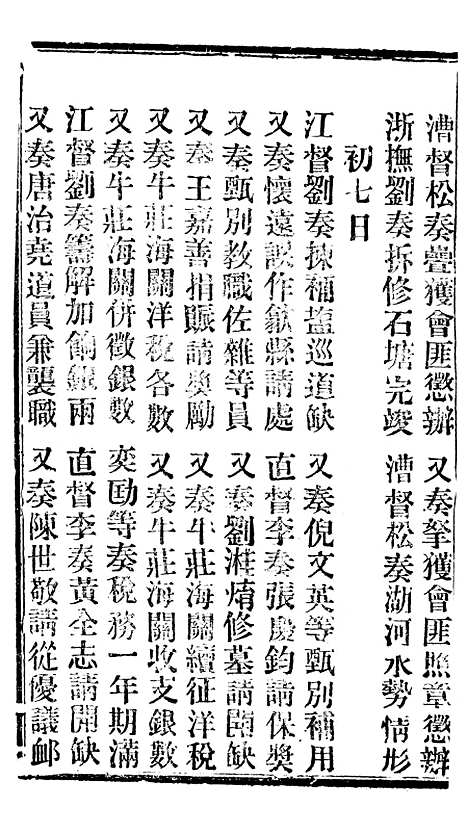 漕督松奏疊獲會匪懲辦　又奏拏獲會匪照章懲辦
浙撫劉奏拆修石塘完竣　漕督松奏湖河水勢情形
初七日
江督劉奏揀補鹽巡道缺　又奏倪文英等甄別補用
又奏懷遠誤作歙縣請處　直督李奏張慶鈞請保獎
又奏甄別教職佐雜等員　又奏劉淮焴修墓請開缺
又奏王嘉善捐賑請獎勵　又奏牛莊海關續征洋稅
又奏牛莊海關洋稅各數　又奏牛莊海關收支銀數
又奏牛莊海關併徵銀數　奕劻等奏稅務一年期滿
江督劉奏籌解加餉銀兩　直督李奏黃全志請開缺
又奏唐治堯道員兼襲職　又奏陳世敬請從優議卹